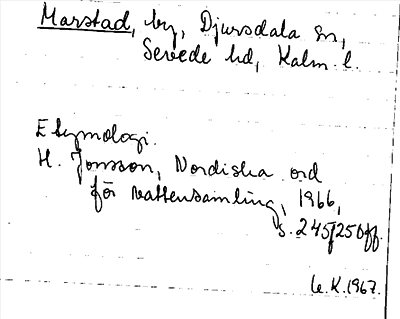 Marstad, by, Djursdala sn,
Sevede hd, Kalm. l.
Etymologi.
H. Jonsson, Nordiska ord
för vattensamling, 1966,
s. 245f, 250ff.
K. 1967.